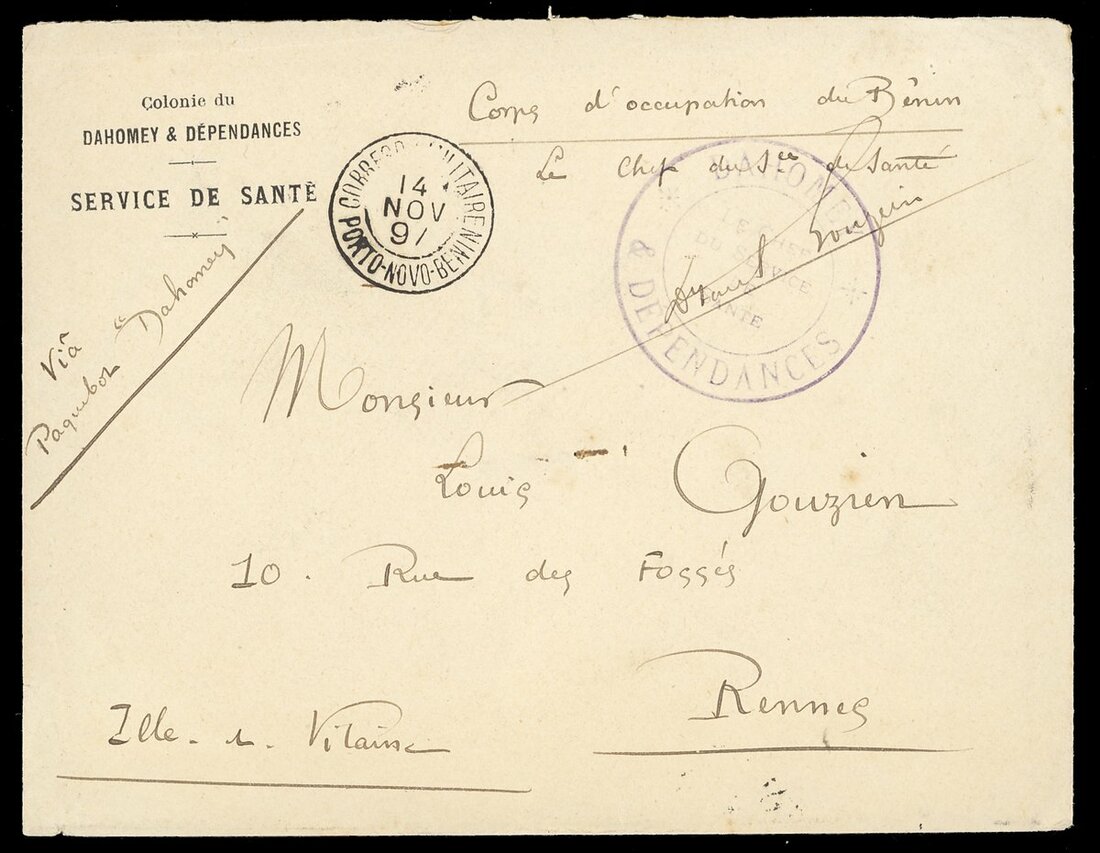 Colonie du
DAHOMEY & DÉPENDANCES
SERVICE DE SANTÉ
Corps d'occupation du Bénin
Le Chef du Sce de Santé
CORRESP. MILITAIRE
14
NOV
97
PORTO-NOVO-BENIN
DAHOMEY
& DÉPENDANCES
LE CHEF
DU SERVICE
DE
SANTÉ
Gouzien
Via
Paquebot Dahomey
Monsieur
Louis Gouzien
10. Rue des Fossés
Rennes
Ille-et-Vilaine